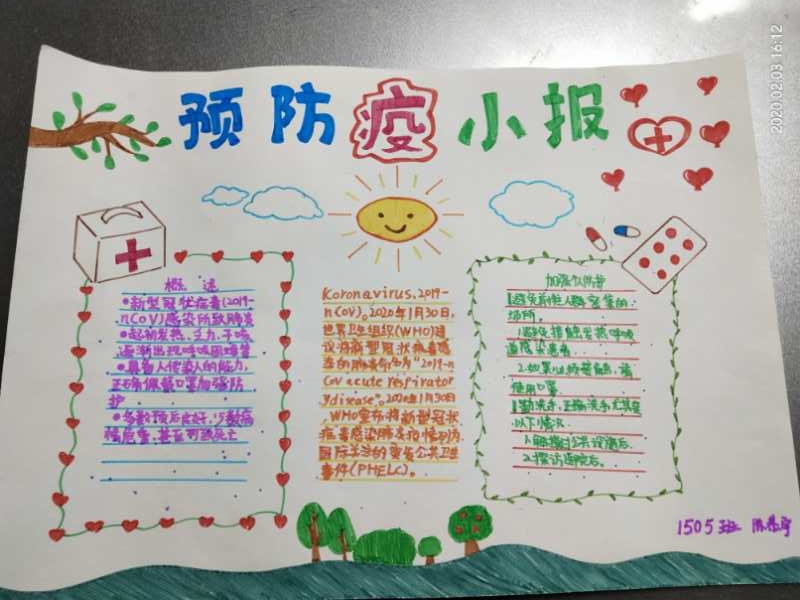 2020.02.03 16:12
预防疫小报
概述
●新型冠状病毒(2019-
nCoV)感染所致肺炎
●起初发热、乏力、干咳
逐渐出现呼吸困难等
●具备人传人的能力,
正确佩戴口罩加强防
护
●多数预后良好,少数病
情危重,甚至可致死亡
Koronavirus,2019-
nCoV)。2020年1月30日,
世界卫生组织(WHO)建
议将新型冠状病毒感
染的肺炎命名为"2019-n
CoV acute respirator
ydisease"。2020年1月30日
,WHO宣布将新型冠状
病毒感染肺炎疫情列为
国际关注的突发公共卫生
事件(PHELC)。
加强个人防护
避免前往人群密集的
场所。
1.避免接触发热呼吸
道感染患者
2.如果
使用口罩。
勤洗手,正确洗手尤其是
以下情况
1.触摸公共设施后
2.探访医院后。
1505班